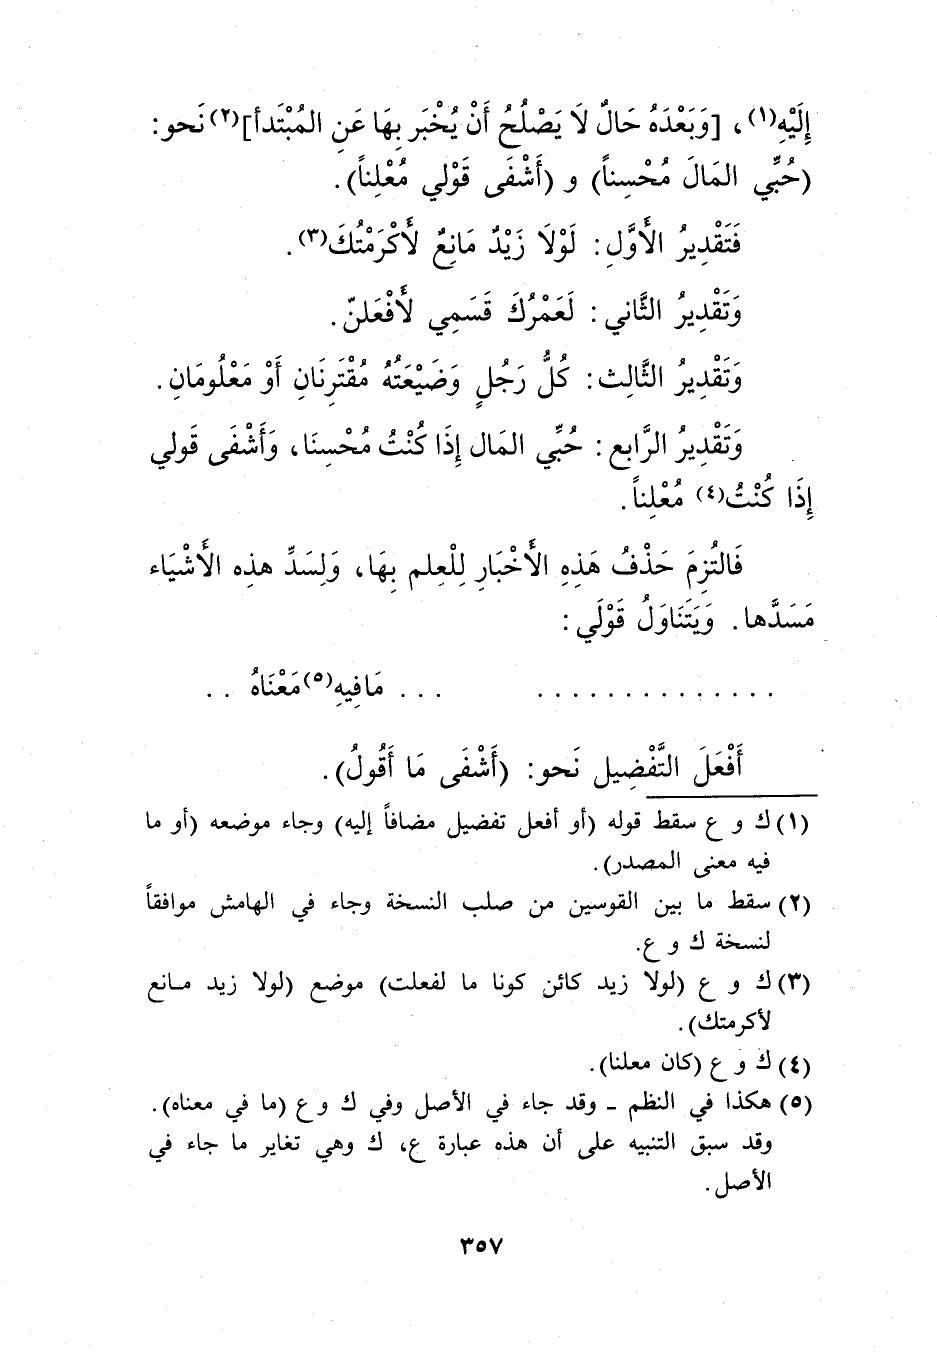 إِلَيْهِ(١)، [وَبَعْدَهُ حَالٌ لَا يَصْلُحُ أَنْ يُخْبَر بِهَا عَنِ المُبْتَدأ](٢) نَحو:
(حُبِّي المَالَ مُحْسِناً) و (أَشْفَى قَوْلي مُعْلِناً).
فَتَقْدِيرُ الأَوَّلِ: لَوْلَا زَيْدٌ مَانِعٌ لأَكْرَمْتُكَ(٣).
وَتَقْدِيرُ الثَّاني: لَعَمْرُكَ قَسَمِي لأَفْعَلنّ.
وَتَقْدِيرُ الثَّالِث: كُلُّ رَجُلٍ وَضَيْعَتُهُ مُقْتَرِنَانِ أَوْ مَعْلُومَانِ.
وَتَقْدِيرُ الرَّابع: حُبِّي المَال إِذَا كُنْتُ مُحْسِنَا، وَأَشْفَى قَولي
إِذَا كُنْتُ(٤) مُعْلِناً.
فَالتُزِمَ حَذْفُ هَذِهِ الأَخْبَارِ لِلْعِلم بِهَا، وَلِسَدِّ هذِه الأَشْيَاء
مَسَدَّها. وَيَتَنَاوَلُ قَوْلَي:
. . . . . . . . . . . . . . . . . مَافِيهِ(٥) مَعْنَاهُ . .
أَفْعَلَ التَّفْضِيل نَحو: (أَشْفَى مَا أَقُولُ).
(١) ك و ع سقط قوله (أو أفعل تفضيل مضافاً إليه) وجاء موضعه (أو ما
فيه معنى المصدر).
(٢) سقط ما بين القوسين من صلب النسخة وجاء في الهامش موافقاً
لنسخة ك و ع.
(٣) ك و ع (لولا زيد كائن كونا ما لفعلت) موضع (لولا زيد مانع
لأكرمتك).
(٤) ك و ع (كان معلنا).
(٥) هكذا في النظم - وقد جاء في الأصل وفي ك و ع (ما في معناه).
وقد سبق التنبيه على أن هذه عبارة ع، ك وهي تغاير ما جاء في
الأصل.
٣٥٧